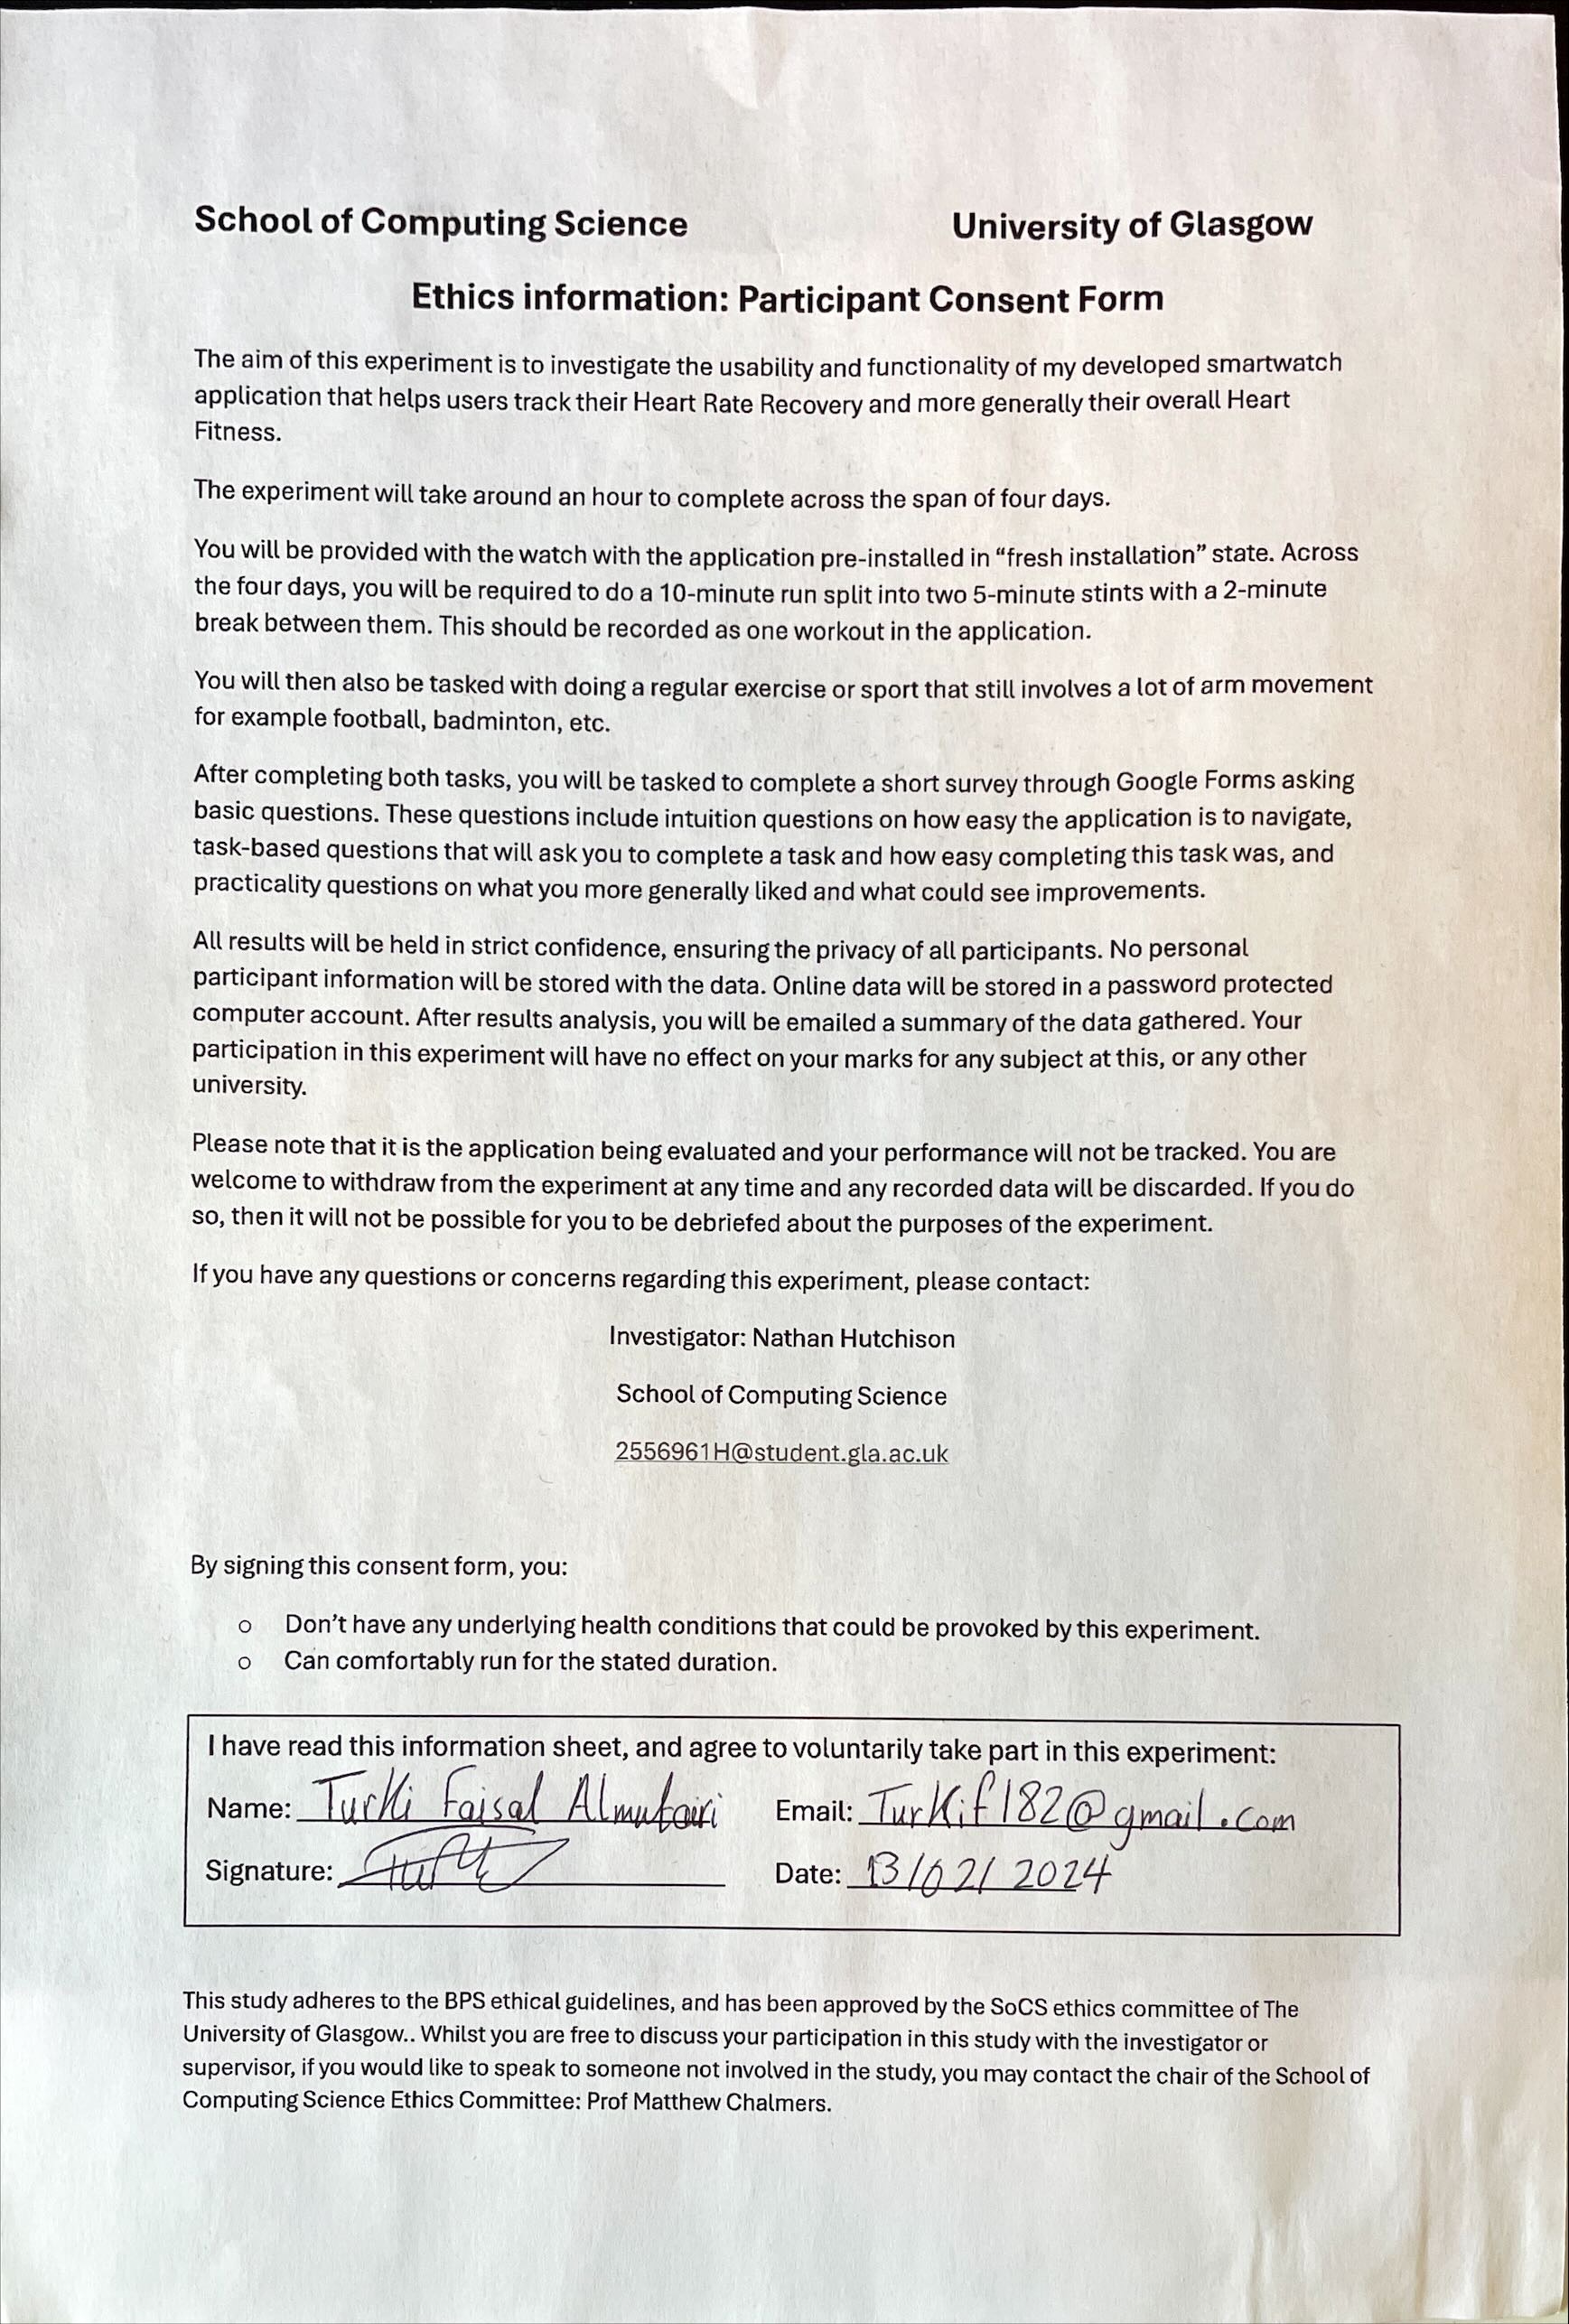 School of Computing Science University of Glasgow
Ethics information: Participant Consent Form
The aim of this experiment is to investigate the usability and functionality of my developed smartwatch
application that helps users track their Heart Rate Recovery and more generally their overall Heart
Fitness.
The experiment will take around an hour to complete across the span of four days.
You will be provided with the watch with the application pre-installed in “fresh installation” state. Across
the four days, you will be required to do a 10-minute run split into two 5-minute stints with a 2-minute
break between them. This should be recorded as one workout in the application.
You will then also be tasked with doing a regular exercise or sport that still involves a lot of arm movement
for example football, badminton, etc.
After completing both tasks, you will be tasked to complete a short survey through Google Forms asking
basic questions. These questions include intuition questions on how easy the application is to navigate,
task-based questions that will ask you to complete a task and how easy completing this task was, and
practicality questions on what you more generally liked and what could see improvements.
All results will be held in strict confidence, ensuring the privacy of all participants. No personal
participant information will be stored with the data. Online data will be stored in a password protected
computer account. After results analysis, you will be emailed a summary of the data gathered. Your
participation in this experiment will have no effect on your marks for any subject at this, or any other
university.
Please note that it is the application being evaluated and your performance will not be tracked. You are
welcome to withdraw from the experiment at any time and any recorded data will be discarded. If you do
so, then it will not be possible for you to be debriefed about the purposes of the experiment.
If you have any questions or concerns regarding this experiment, please contact:
Investigator: Nathan Hutchison
School of Computing Science
2556961H@student.gla.ac.uk
By signing this consent form, you:
o Don’t have any underlying health conditions that could be provoked by this experiment.
o Can comfortably run for the stated duration.
I have read this information sheet, and agree to voluntarily take part in this experiment:
Name: Turki Faisal Almutairi Email: Turkif182@gmail.com
Signature: Date: 13/02/2024
This study adheres to the BPS ethical guidelines, and has been approved by the SoCS ethics committee of The
University of Glasgow.. Whilst you are free to discuss your participation in this study with the investigator or
supervisor, if you would like to speak to someone not involved in the study, you may contact the chair of the School of
Computing Science Ethics Committee: Prof Matthew Chalmers.